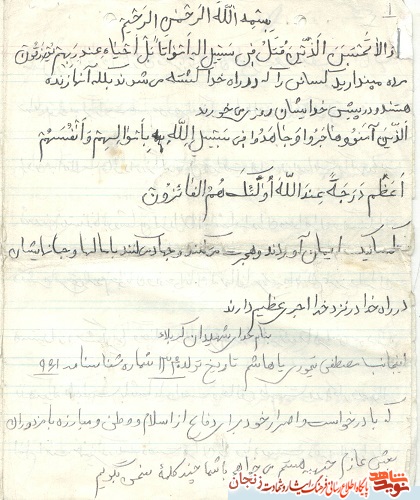 ۱
بسمه الله الرحمن الرحیم
الا تحسبن الذین قتل فی سبیل الله امواتا بل احیاء عند ربهم یرزقون
مرده مپندارید کسانی را که در راه خدا کشته می شوند بلکه آنها زنده
هستند و در پیش خدایشان روزی می خورند
الذین آمنوو هاجروا و جاهدوا فی سبیل الله باموالهم و انفسهم
اعظم درجةً عند الله اولئک هم الفائزون
کسانیکه ایمان آوردند و هجرت می کنند و جهاد می کنند با مالها و جانهایشان
در راه خدا در نزد خدا اجری عظیم دارند
بنام خدای شهیدان کربلاء
اینجانب مصطفی تیموری یا هاشم تاریخ تولد شماره شناسنامه ۹۶۱
که با درخواست و اصرار خود برای دفاع از اسلام و وطن و مبارزه با مزدوران
بعثی عازم جبهه هستم می خواهم با شما چند کلمه سخن بگویم
نوید شاهد
پایگاه اطلاع رسانی فرهنگ ایثار و شهادت زنجان